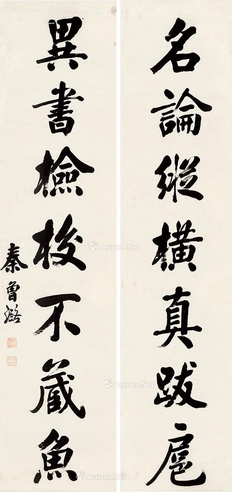 名論縱橫真跋扈
異書檢校不蔵魚
秦曾潞